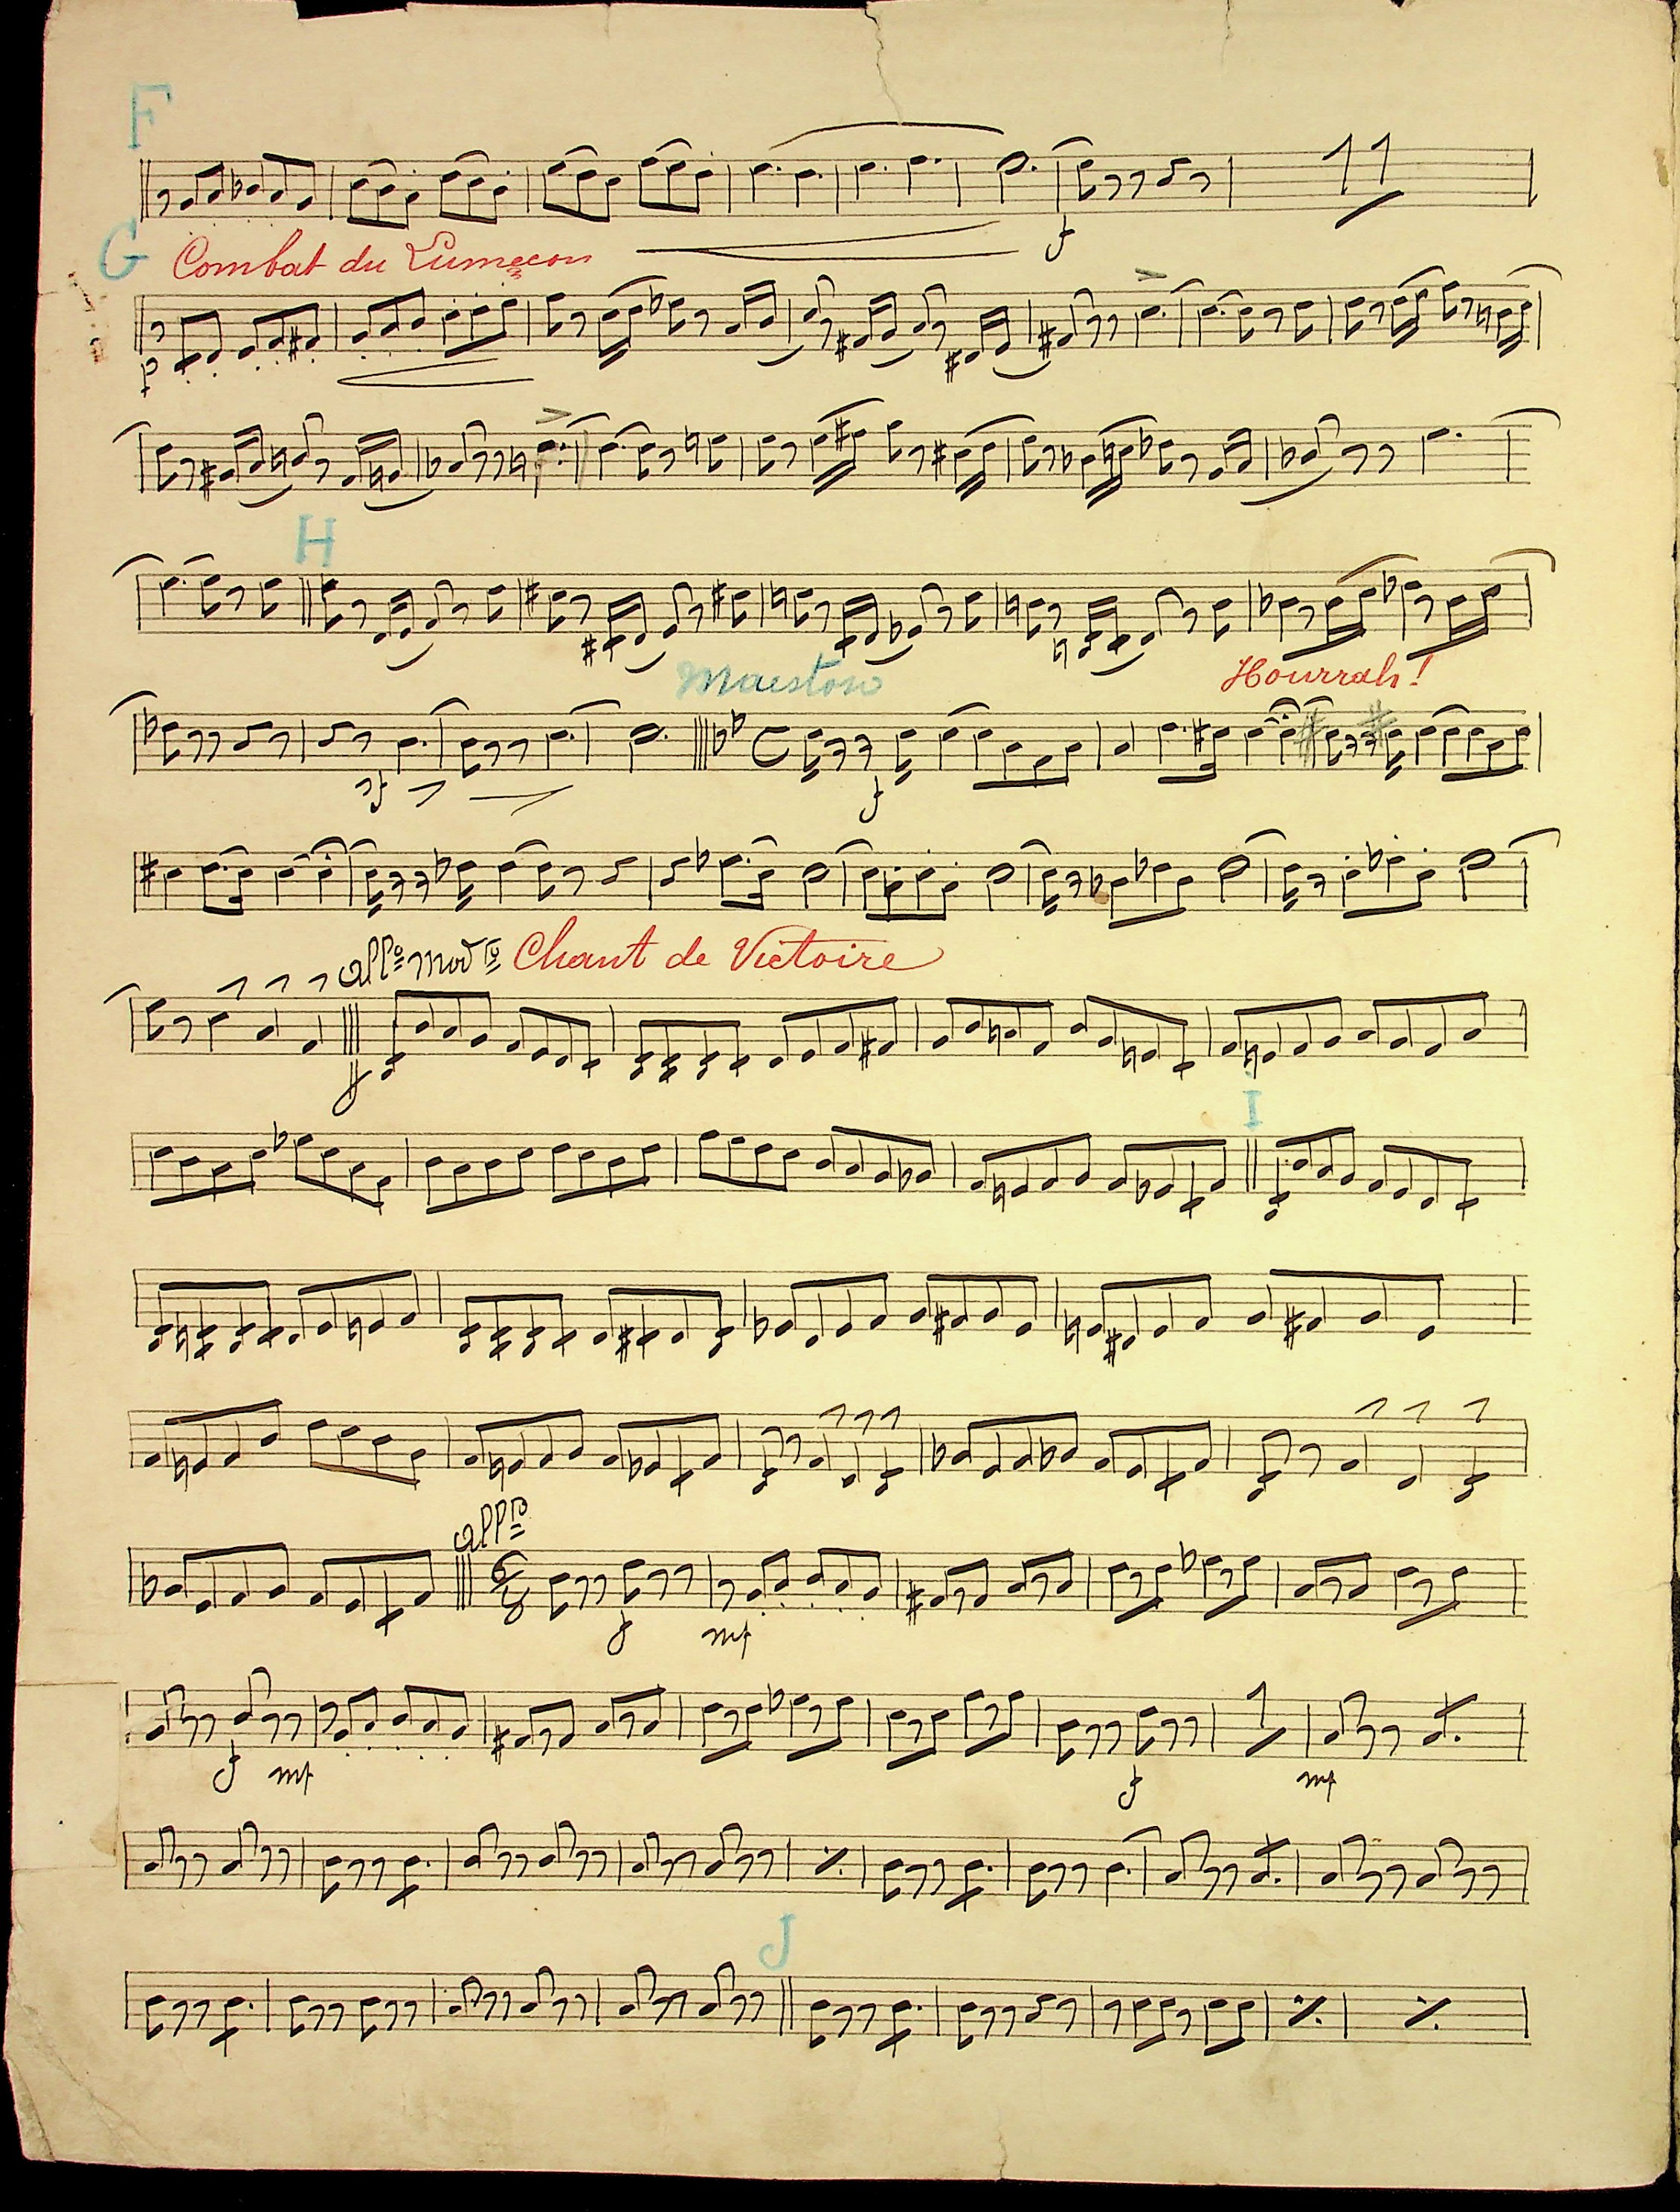 F
11
f
G Combat du Lumeçon
p
H
Maestoso
Hourrah!
sf
C
f
Allo Modto Chant de Victoire
f
I
Allo
6 8
f mf
f mf f 1 mf
J